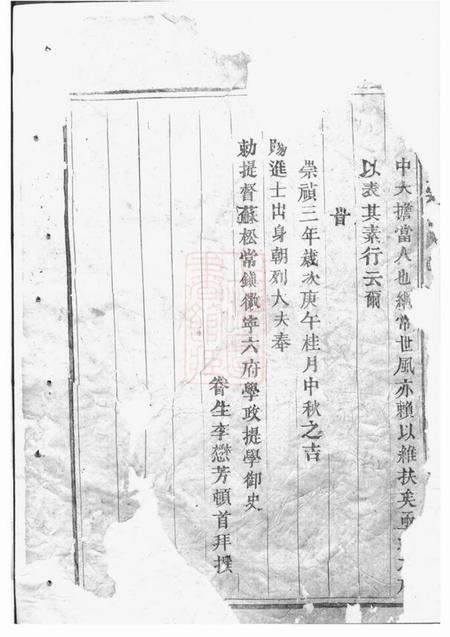 中大擔當人也綱常世風亦賴以維扶矣
以表其素行云爾
旹
崇禎三年歲次庚午桂月中秋之吉
賜進士出身朝列大夫奉
勅提督蘇松常鎮徽寧六府學政提學御史
眷生李懋芳頓首拜撰